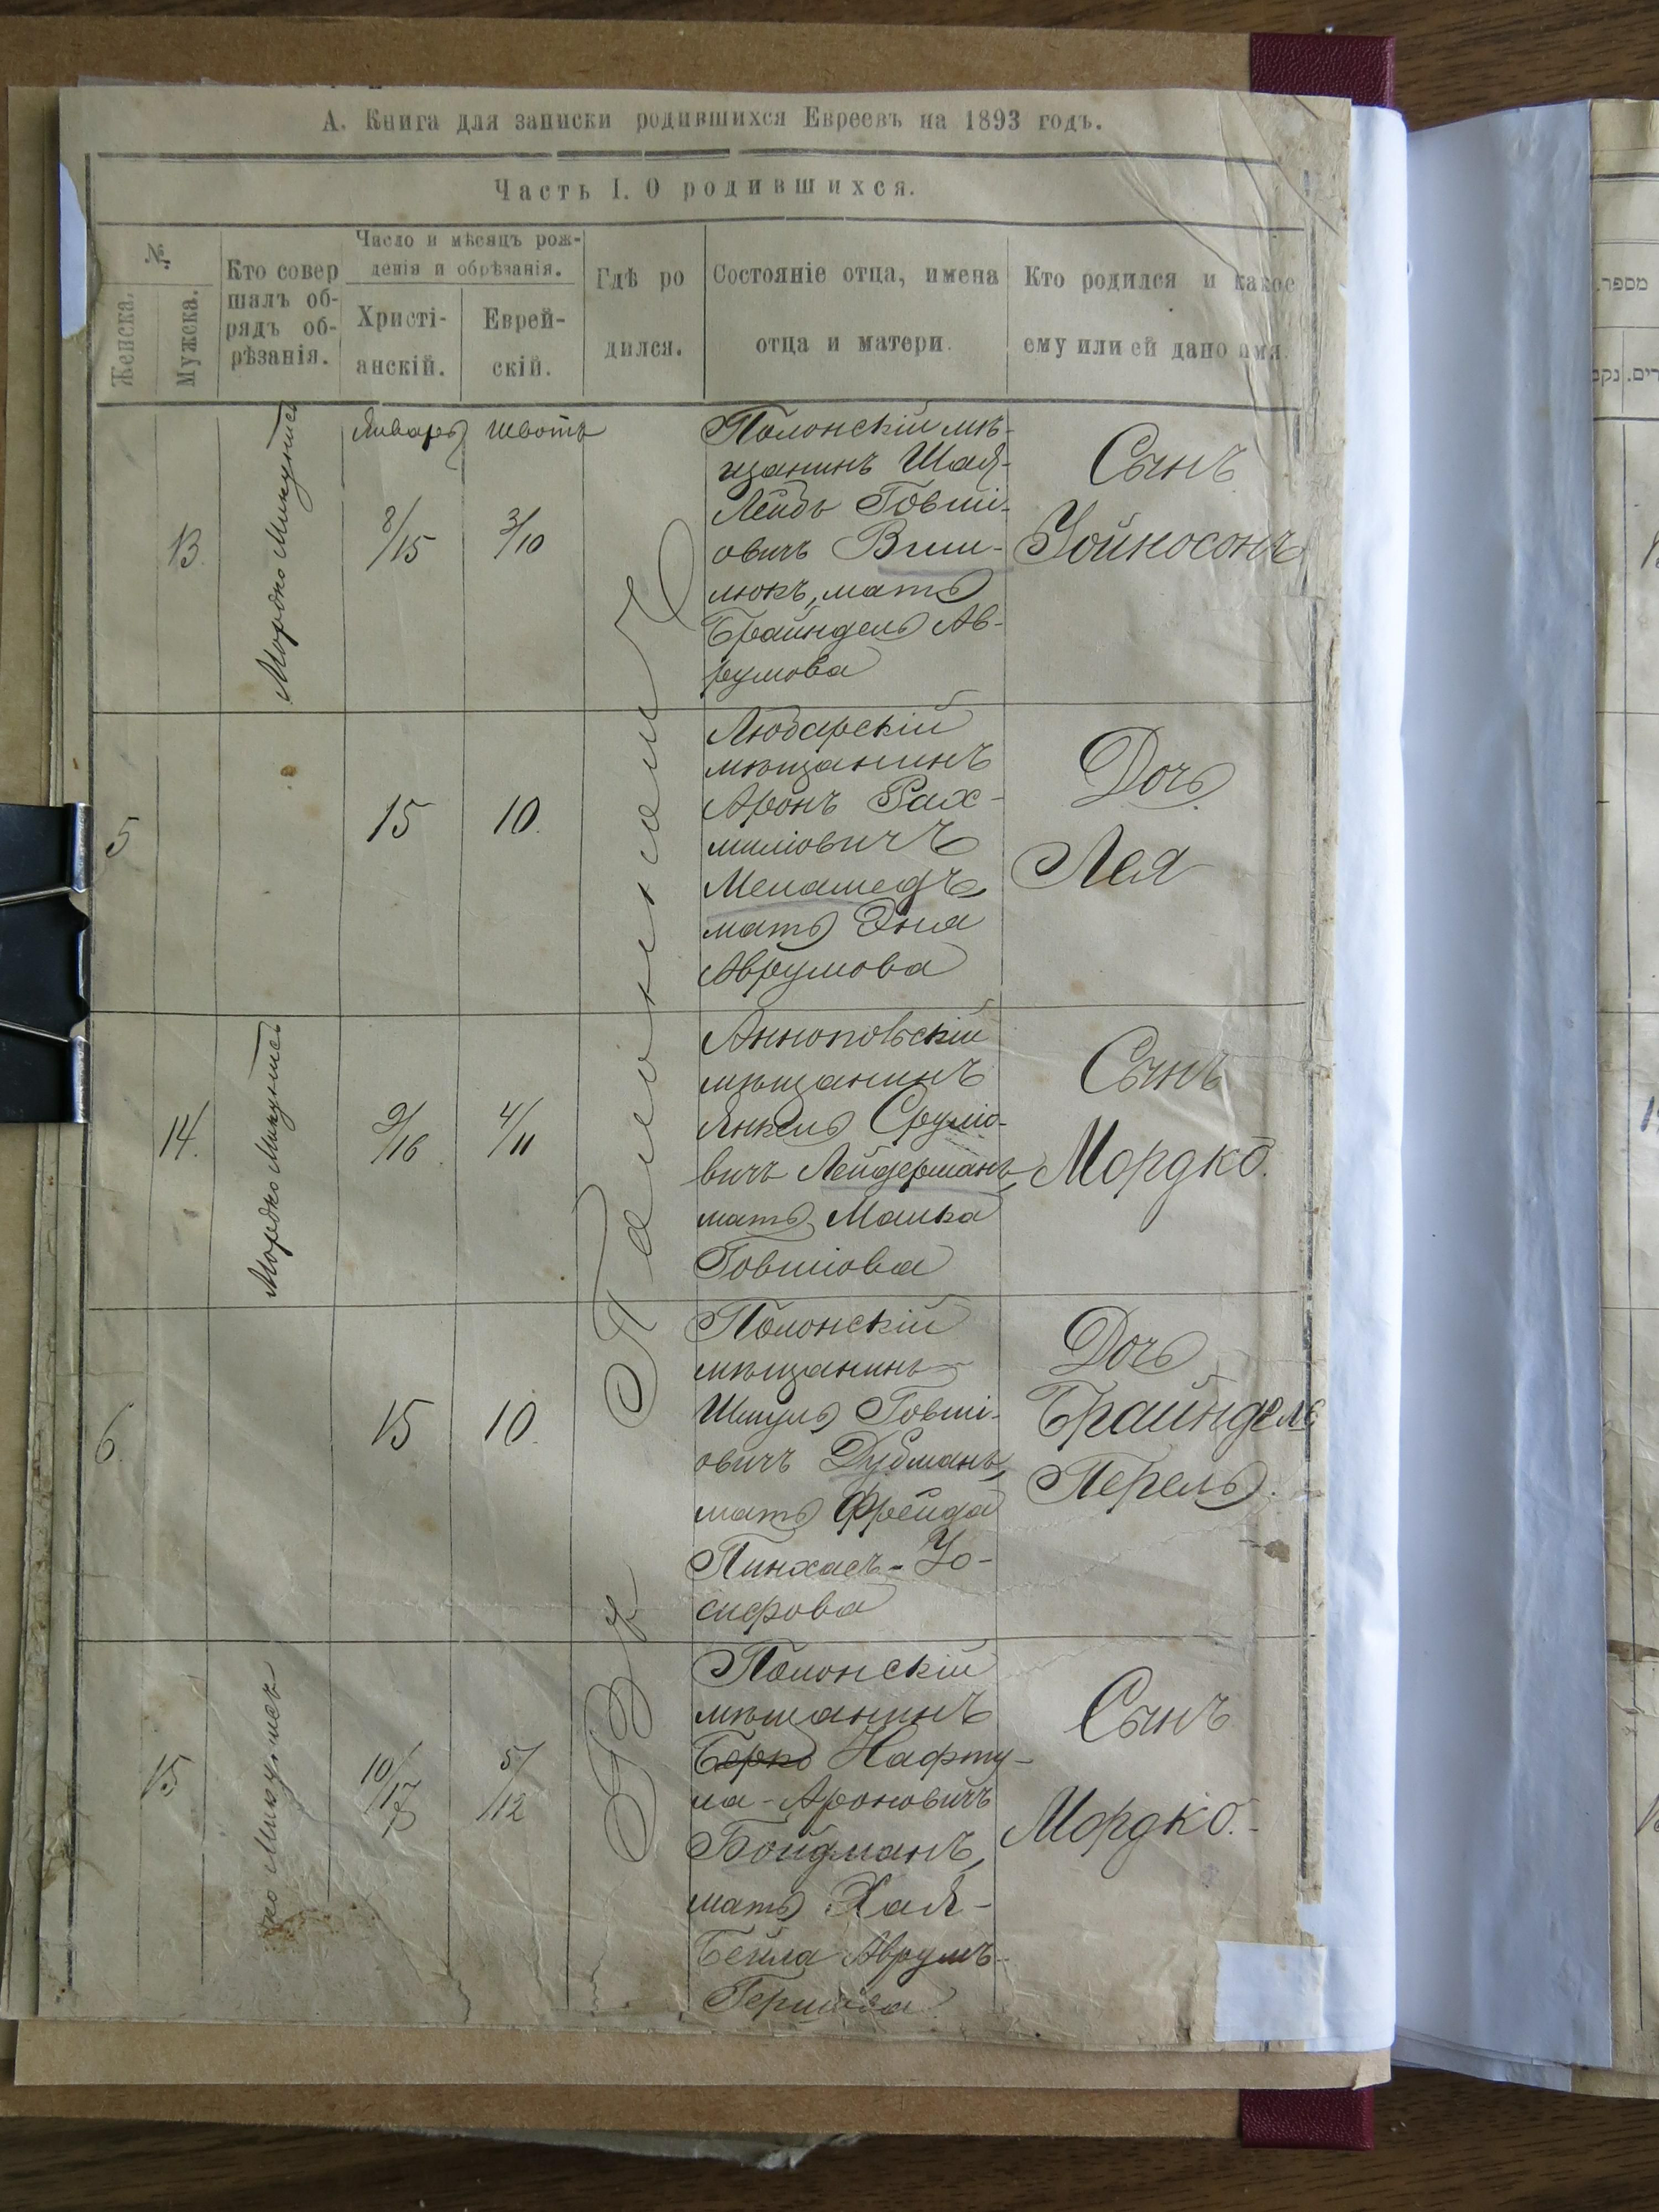 А. Книга для записки родившихся Евреевъ на 1893 годъ.
Часть I. О родившихся.
№.
Женска.
Мужеска.
Кто совер
шалъ об-
рядъ об-
рѣзанія.
Число и мѣсяцъ рож-
денія и обрѣзанія.
Христі-
анскій.
Еврей-
скій.
Гдѣ ро
дился.
Состояніе отца, имена
отца и матери.
Кто родился и какое
ему или ей дано имя.
Въ Полонномъ
13.
Мордко
Январь
8/15
Шватъ
3/10
Полонскій мѣ-
щанинъ Шая-
Лейбъ Говші-
овичъ
мать
Брайндель Ав-
румова
Сынъ
Уойносонъ
5
15
10.
Любарскій
мѣщанинъ
Аронъ Рах-
миліовичъ
Меламедъ,
мать Эня
Аврумова
Дочь
Лея
14.
Мордко
9/16
4/11
Аннопольскій
мѣщанинъ
Янкель Сруліо-
вичъ Лейдерманъ,
мать Малка
Говшіова
Сынъ
Мордко.
6.
15
10.
Полонскій
мѣщанинъ
Шмуль Говші-
овичъ Дубманъ,
мать Фрейда
Пинхасъ-Іо-
сифова
Дочь
Брайндель
Перель.
15
10/17
5/12
Полонскій
мѣщанинъ
Берко Нафту-
ла-Ароновичъ
Бойдманъ,
мать Хая-
Бейла Аврумъ-
Гершкова
Сынъ
Мордко.
מספר.